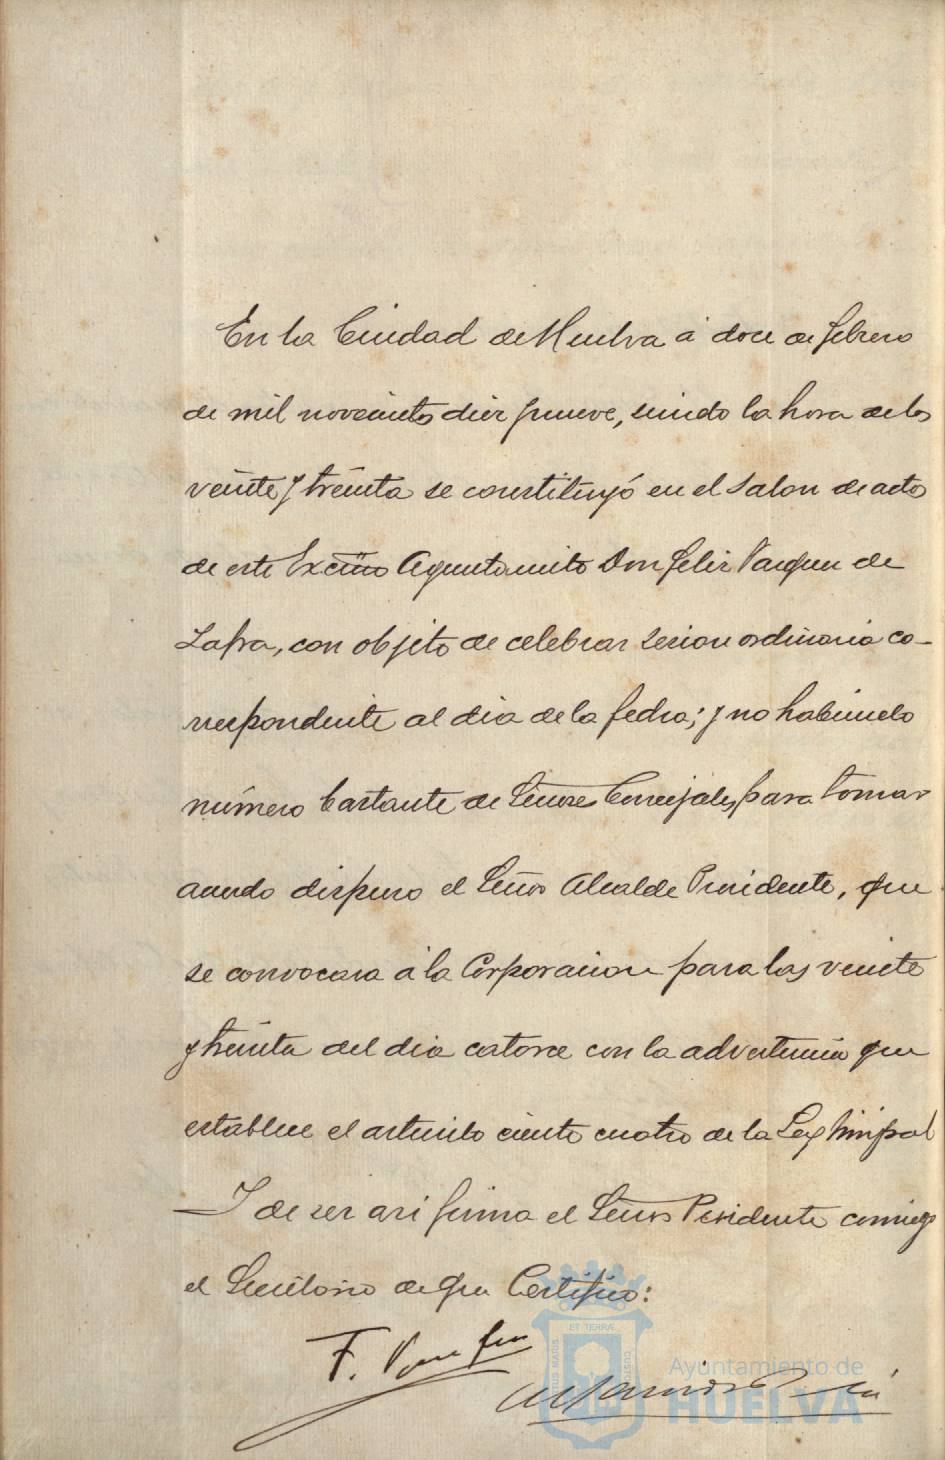 En la Ciudad de Huelva á doce de febrero
de mil novecientos diez y nueve, siendo la hora de las
veinte y treinta se constituyó en el salon de actos
de este Excmo Ayuntamiento Don Felix Vazquez de
Zafra, con objeto de celebrar sesion ordinaria co-
rrespondiente al dia de la fecha; y no habiendo
número bastante de Señores Concejales, para tomar
acuerdo dispuso el Señor Alcalde Presidente, que
se convocara á la Corporacion para las veinte
y treinta del dia catorce con la advertencia que
establece el articulo ciento cuatro de la Ley Mnipal
Y de ser asi firma el Señor Presidente conmigo
el Secretario de que Certifico:
F. Vazquez
Ayuntamiento de
HUELVA